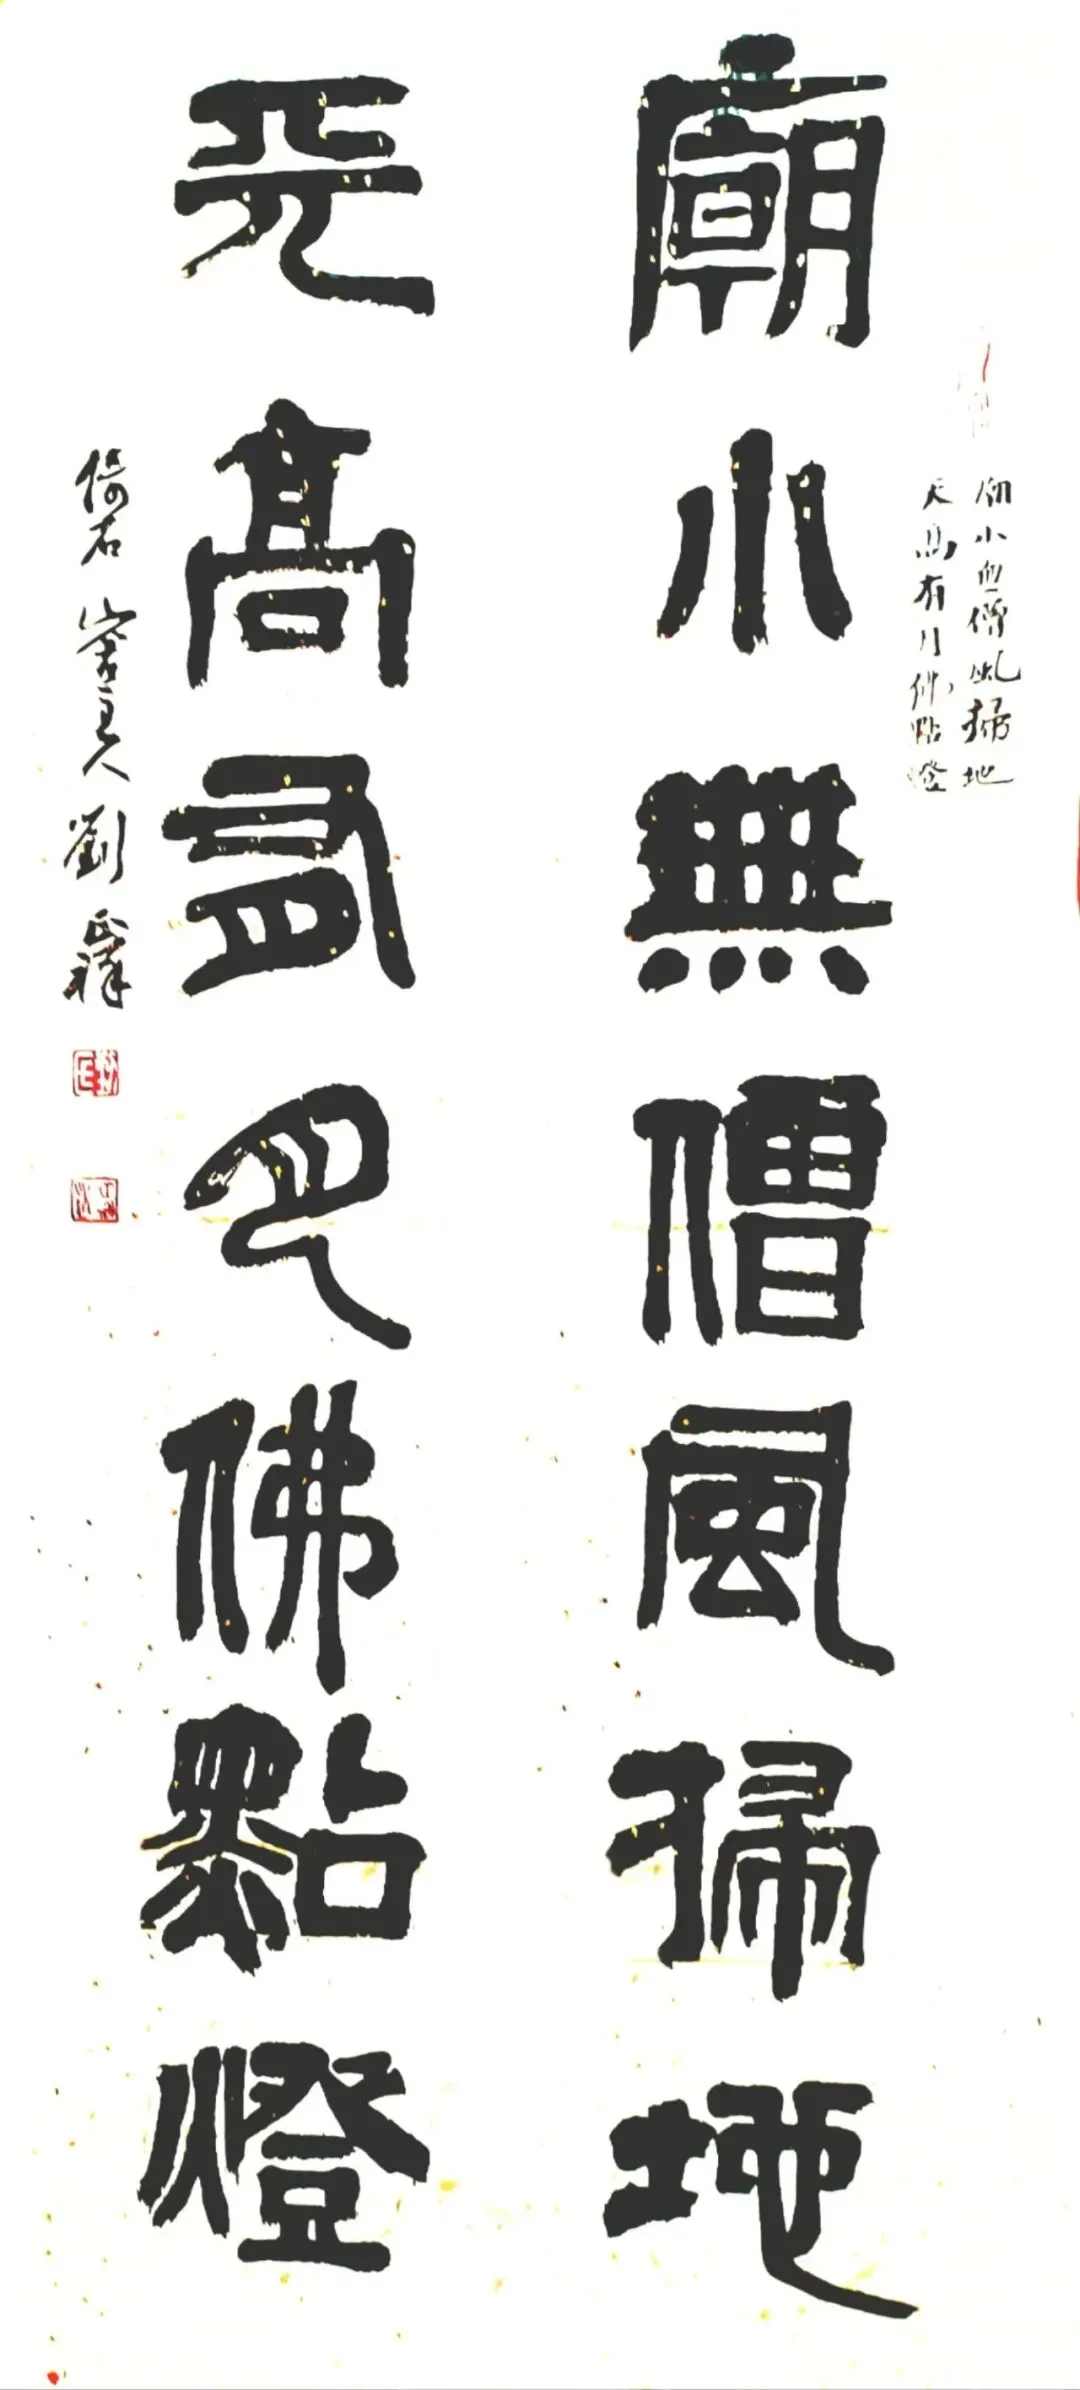 廟小無僧風掃地
天高有月佛點燈
廟小無僧風掃地
天高有月佛點燈
倚石 主人 劉